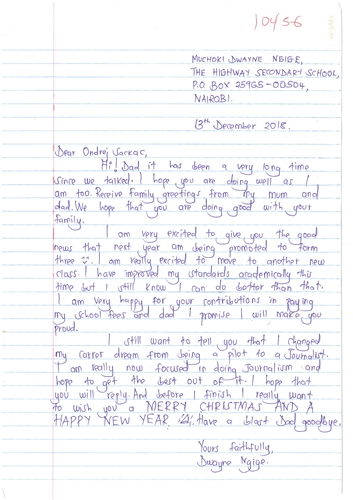 10456
MUCHOKI DWAYNE NGIGE,
THE HIGHWAY SECONDARY SCHOOL,
P.O. BOX 25965-00504,
NAIROBI.
13th December 2018.
Dear Ondrej Sackac,
Hi! Dad it has been a very long time
since we talked. I hope you are doing well as I
am too. Receive family greetings from my mum and
dad. We hope that you are doing good with your
family.
I am very excited to give you the good
news that next year am being promoted to form
three. I am really excited to move to another new
class. I have improved my standards academically this
time but I still know I can do better than that.
I am very happy for your contributions in paying
my school fees and dad I promise I will make you
proud.
I still want to tell you that I changed
my carror dream from being a pilot to a Journalist.
I am really now focused in doing Journalism and
hope to get the best out of it. I hope that
you will reply. And before I finish I really want
to wish you a MERRY CHRISTMAS AND A
HAPPY NEW YEAR. Have a blast Dad goodbye.
Yours faithfully,
Dwayne Ngige.